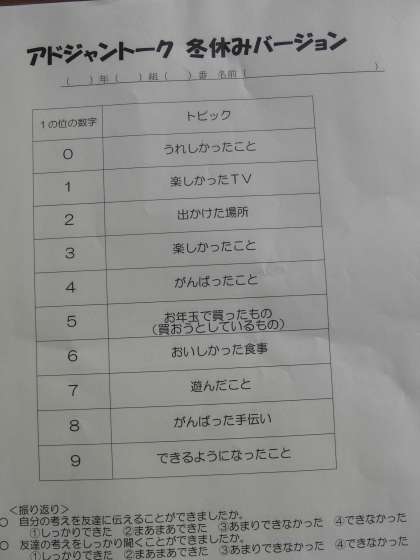 アドジャントーク 冬休みバージョン
（　　）年（　　）組（　　）番　名前（　　　　　　　　　　）
１の位の数字　トピック
０　うれしかったこと
１　楽しかったＴＶ
２　出かけた場所
３　楽しかったこと
４　がんばったこと
５　お年玉で買ったもの
（買おうとしているもの）
６　おいしかった食事
７　遊んだこと
８　がんばった手伝い
９　できるようになったこと
＜振り返り＞
○　自分の考えを友達に伝えることができましたか。
①しっかりできた　②まあまあできた　③あまりできなかった　④できなかった
○　友達の考えをしっかり聞くことができましたか。
①しっかりできた　②まあまあできた　③あまりできなかった　④できなかった